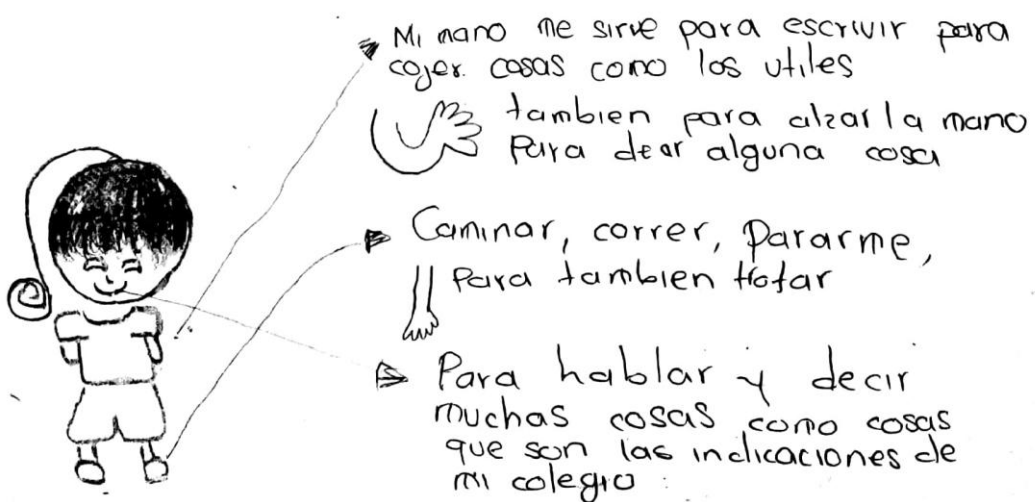 Mi mano me sirve para escrivir para
cojer cosas como los utiles
tambien para alzar la mano
Para alguna cosa
Caminar, correr, Pararme,
Para tambien trotar
Para hablar y decir
muchas cosas como cosas
que son las indicaciones de
mi colegio